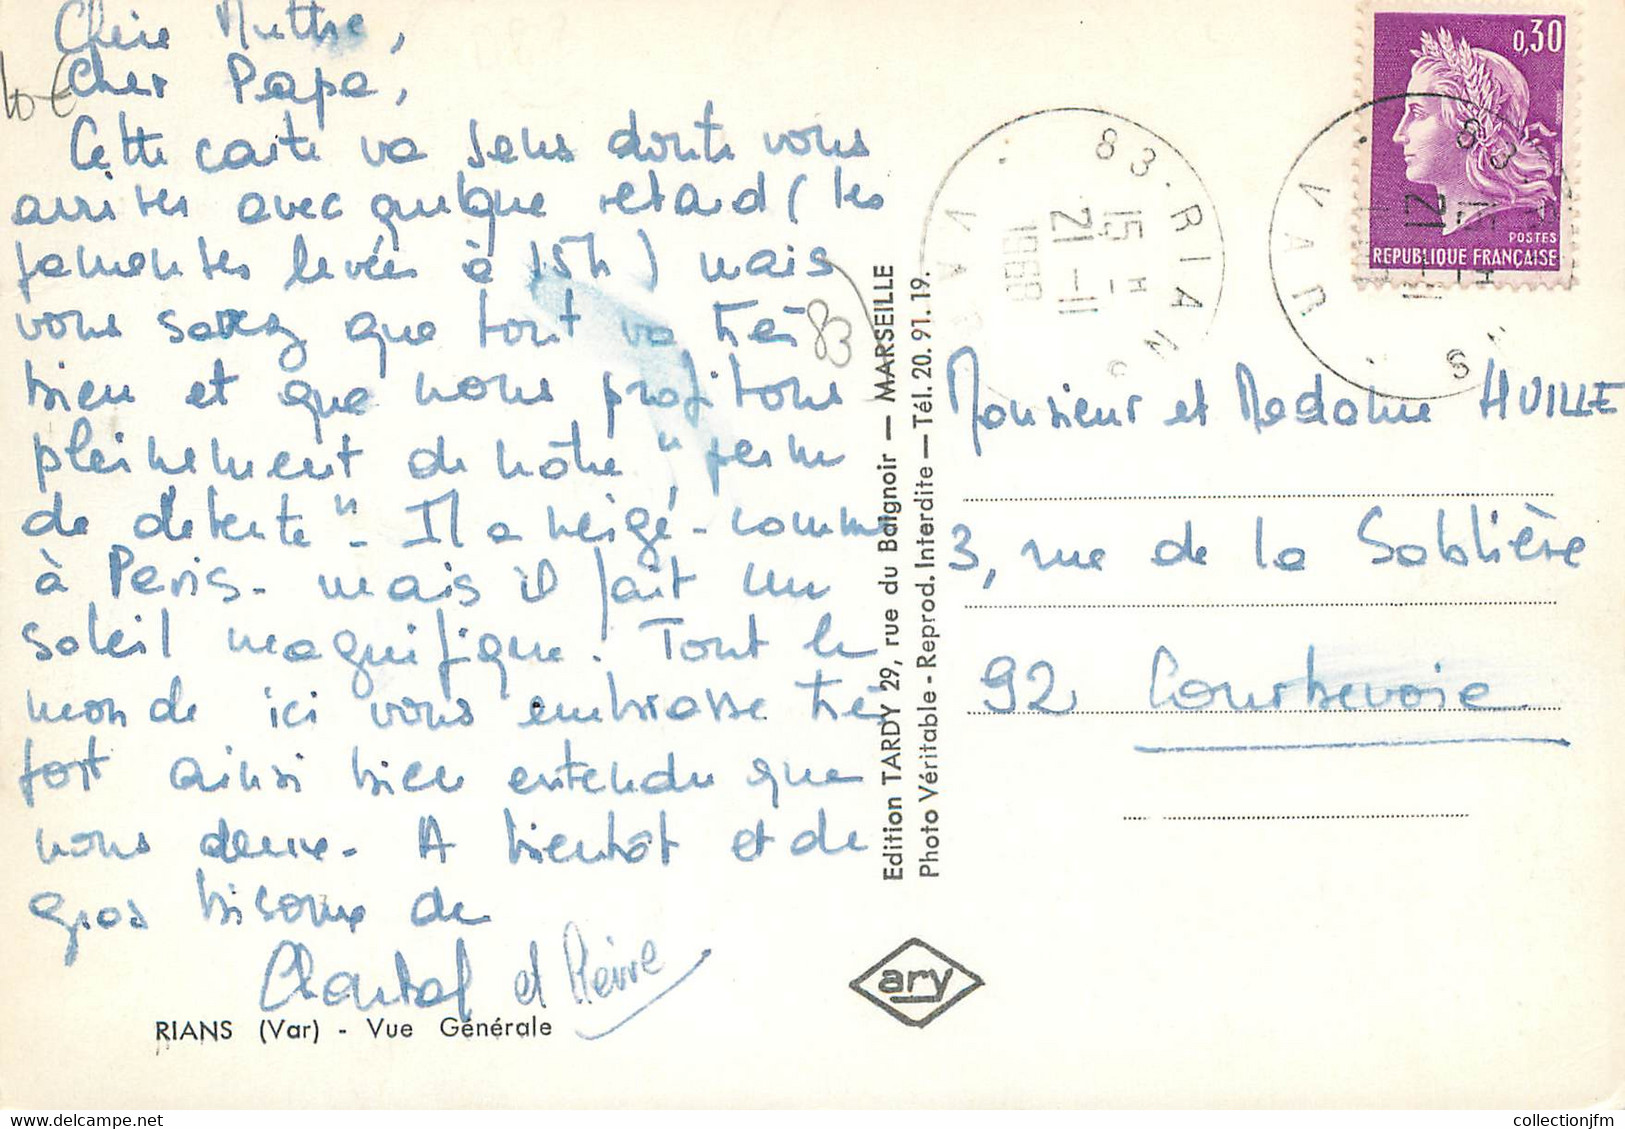 Chère Muthe,
Cher Papa,
10 €
Cette carte va sans doute vous
arriver avec quelque retard (les
fameuses levées à 15h) mais
vous savez que tout va très
bien et que nous profitons
pleinement de nôtre "perme
de detente" - Il a neigé - comme
à Paris - mais il fait un
soleil magnifique. Tout le
monde ici vous embrasse très
fort ainsi bien entendu que
nous deux - A bientôt et de
gros bisous de
Chantal et Pierre
RIANS (Var) - Vue Générale
83
Edition TARDY 29, rue du Baignoir — MARSEILLE
Photo Véritable - Reprod. Interdite — Tél. 20. 91. 19.
ary
83 · RIANS
15 H
21-11
VAR
83
VAR
0,30
POSTES
REPUBLIQUE FRANÇAISE
Monsieur et Madame HUILLE
3, rue de la Sablière
92 Courbevoie
collectionjfm